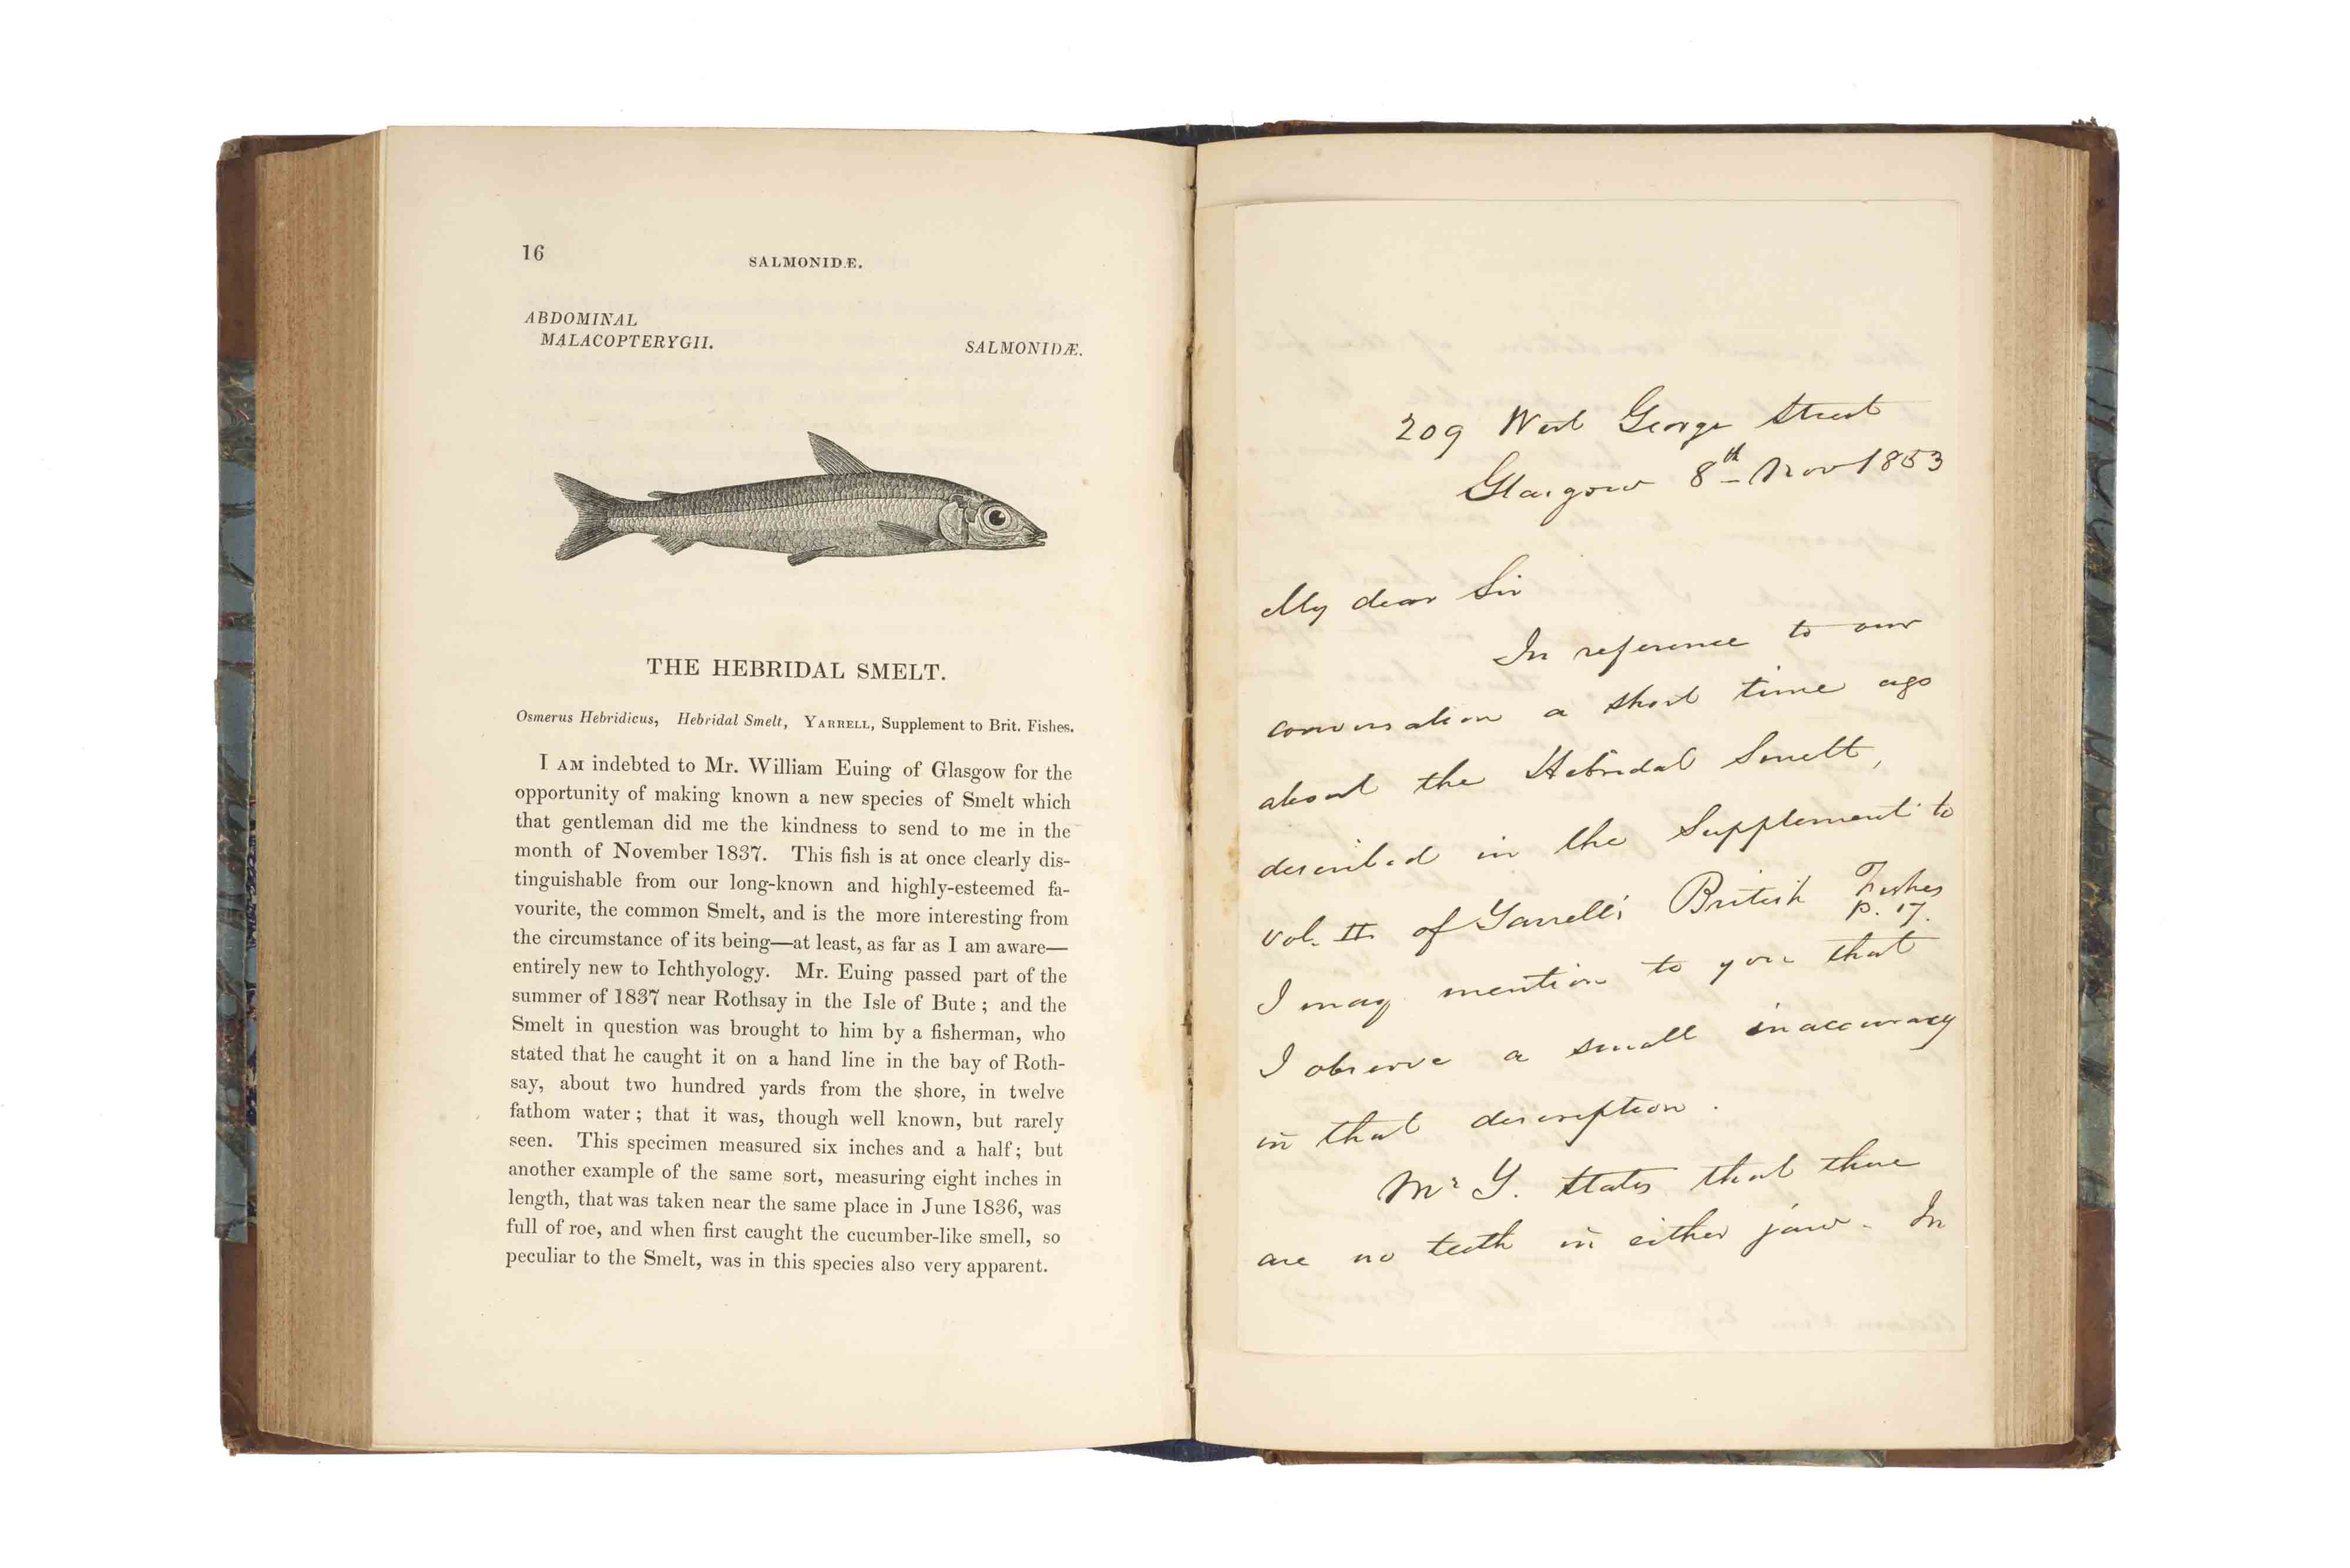 16
SALMONIDÆ.
ABDOMINAL
MALACOPTERYGII.
SALMONIDÆ.
THE HEBRIDAL SMELT.
Osmerus Hebridicus, Hebridal Smelt, YARRELL, Supplement to Brit. Fishes.
I AM indebted to Mr. William Euing of Glasgow for the
opportunity of making known a new species of Smelt which
that gentleman did me the kindness to send to me in the
month of November 1837. This fish is at once clearly dis-
tinguishable from our long-known and highly-esteemed fa-
vourite, the common Smelt, and is the more interesting from
the circumstance of its being—at least, as far as I am aware—
entirely new to Ichthyology. Mr. Euing passed part of the
summer of 1837 near Rothsay in the Isle of Bute; and the
Smelt in question was brought to him by a fisherman, who
stated that he caught it on a hand line in the bay of Roth-
say, about two hundred yards from the shore, in twelve
fathom water; that it was, though well known, but rarely
seen. This specimen measured six inches and a half; but
another example of the same sort, measuring eight inches in
length, that was taken near the same place in June 1836, was
full of roe, and when first caught the cucumber-like smell, so
peculiar to the Smelt, was in this species also very apparent.
209 West George Street
Glasgow 8th Nov 1853
My dear Sir
In reference to our
conversation a short time ago
about the Hebridal Smelt,
described in the Supplement to
vol. II. of Yarrell's British Fishes
p. 17.
I may mention to you that
I observe a small inaccuracy
in that description.
Mr Y. states that there
are no teeth in either jaw. In